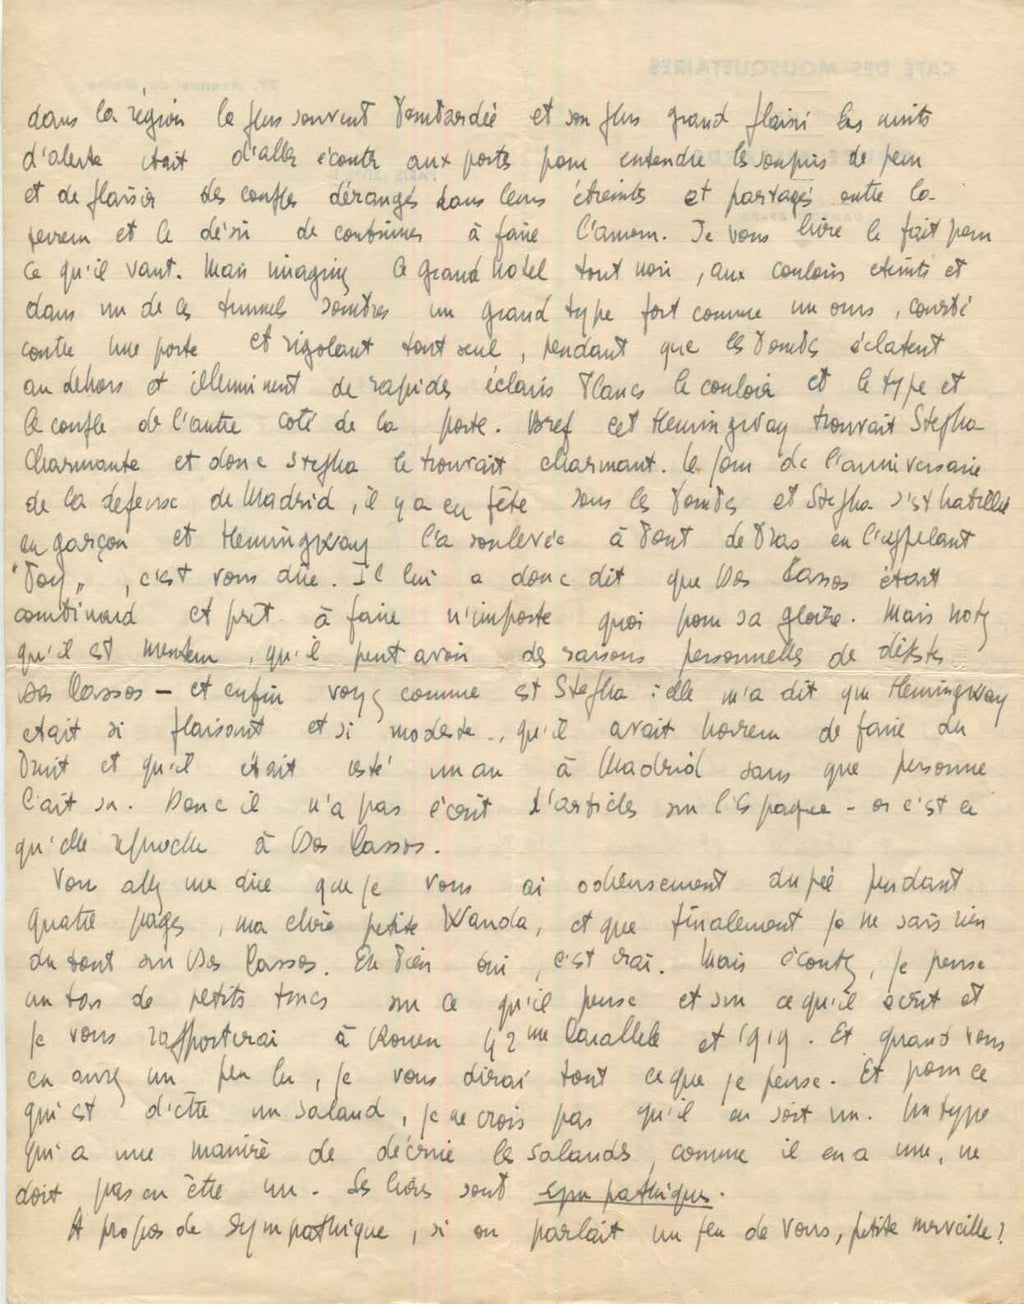 CAFÉ DES MOUSQUETAIRES
77, Avenue du Maine
dans la région la plus souvent bombardée et son plus grand plaisir les nuits
d'alerte était d'aller écouter aux portes pour entendre les soupirs de peur
et de plaisir des couples dérangés dans leurs étreintes et partagés entre la
terreur et le désir de continuer à faire l'amour. Je vous livre le fait pour
ce qu'il vaut. Mais imaginez ce grand hôtel tout noir, aux couloirs éteints et
dans un de ces tunnels sombres un grand type fort comme un ours, courbé
contre une porte et rigolant tout seul, pendant que les bombes éclatent
au dehors et illuminent de rapides éclairs blancs le couloir et le type et
le couple de l'autre coté de la porte. Bref cet Hemingway trouvait Stepha
charmante et donc Stepha le trouvait charmant. Le jour de l'anniversaire
de la défense de Madrid, il y a eu fête sous les bombes et Stepha s'est habillée
en garçon et Hemingway l'a soulevée à bout de bras en l'appelant
"Boy", c'est vous dire. Il lui a donc dit que Dos Passos était
combinard et prêt à faire n'importe quoi pour sa gloire. Mais notez
qu'il est menteur, qu'il peut avoir des raisons personnelles de détester
Dos Passos – et enfin voyez comme est Stepha : elle m'a dit que Hemingway
était si plaisant et si modeste, qu'il avait horreur de faire du
bruit et qu'il était resté un an à Madrid sans que personne
l'ait su. Donc il n'a pas écrit d'articles sur l'Espagne – or c'est ce
qu'elle reproche à Dos Passos.
Vous allez me dire que je vous ai odieusement dupée pendant
quatre pages, ma chère petite Wanda, et que finalement je ne sais rien
du tout sur Dos Passos. Eh bien oui, c'est vrai. Mais écoutez, je pense
un tas de petits trucs sur ce qu'il pense et sur ce qu'il écrit et
je vous rapporterai à Rouen 42me Parallèle et 1919. Et quand vous
en aurez un peu lu, je vous dirai tout ce que je pense. Et pour ce
qui est d'être un salaud, je ne crois pas qu'il en soit un. Un type
qui a une manière de décrire les salauds, comme il en a une, ne
doit pas en être un. Ses livres sont sympathiques.
A propos de sympathique, si on parlait un peu de vous, petite merveille ?